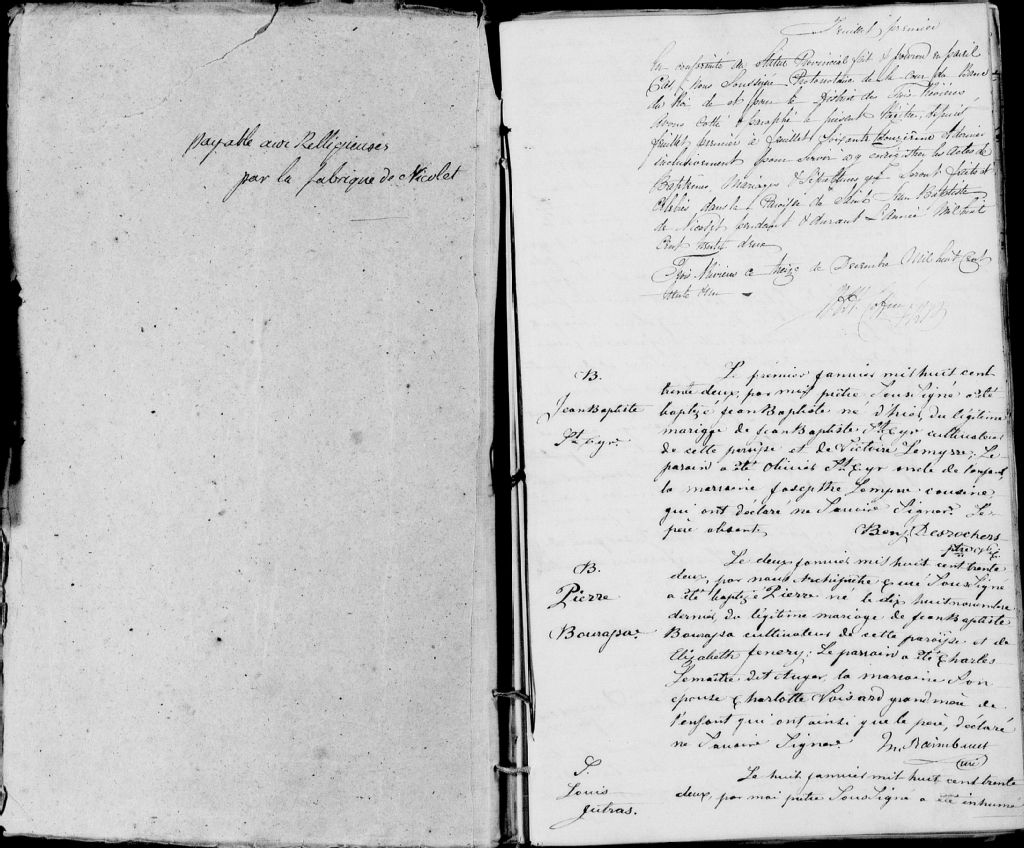 payable aux Relligieuses
par la fabrique de Nicolet
Feuillet premier
En conformité du Statut Provincial fait & pourvu en pareil
Cas, Nous Soussigné Protonotaire de la cour du Banc
du Roi de et pour le District des Trois Rivières
avons cotté & paraphé le présent Régitre, depuis
feuillet premier à feuillet Soixante douzième et dernier
inclusivement pour servir à y enrégistrer les Actes de
Baptêmes, Mariages & Sépultures qui seront faits et
célébrés dans la Paroisse de Saint Jean Baptiste
de Nicolet pendant & durant L'Année Mil huit
Cent trente deux
Trois Rivières ce treize de Decembre Mil huit Cent
trente Un
B.
Jean Baptiste
St. Cyr.
Le prémier janvier mil huit cent
trente deux, par moi prêtre Sous Signé a été
baptizé Jean Baptiste né d'hier, du légitime
mariage de Jean Baptiste St. Cyr cultivateur
de cette paroisse et de Victoire Lemyre; Le
parain a été Olivier St. Cyr oncle de l'enfant,
la marraine Josepthe Lemyre cousine,
qui ont déclaré ne Savoir Signer. Le
père absent.
Benj. Desrochers
ptre
B.
Pierre
Bourassa.
Le deux janvier mil huit cent trente
deux, par nous Archiprêtre Curé Sous Signé
a été baptizé Pierre né le dix huit novembre
dernier, du légitime mariage de Jean Baptiste
Bourassa cultivateur de cette paroisse et de
Elizabeth Jenery; Le parrain a été Charles
Lemaitre dit Auger, la marraine Son
epouse Charlotte Voisard grand mère de
l'enfant qui ont ainsi que le père, déclaré
ne Savoir Signer.
M. Raimbault
Curé
S.
Louis
Jutras.
Le huit janvier mil huit cent trente
deux, par moi prêtre Sous Signé a été inhumé